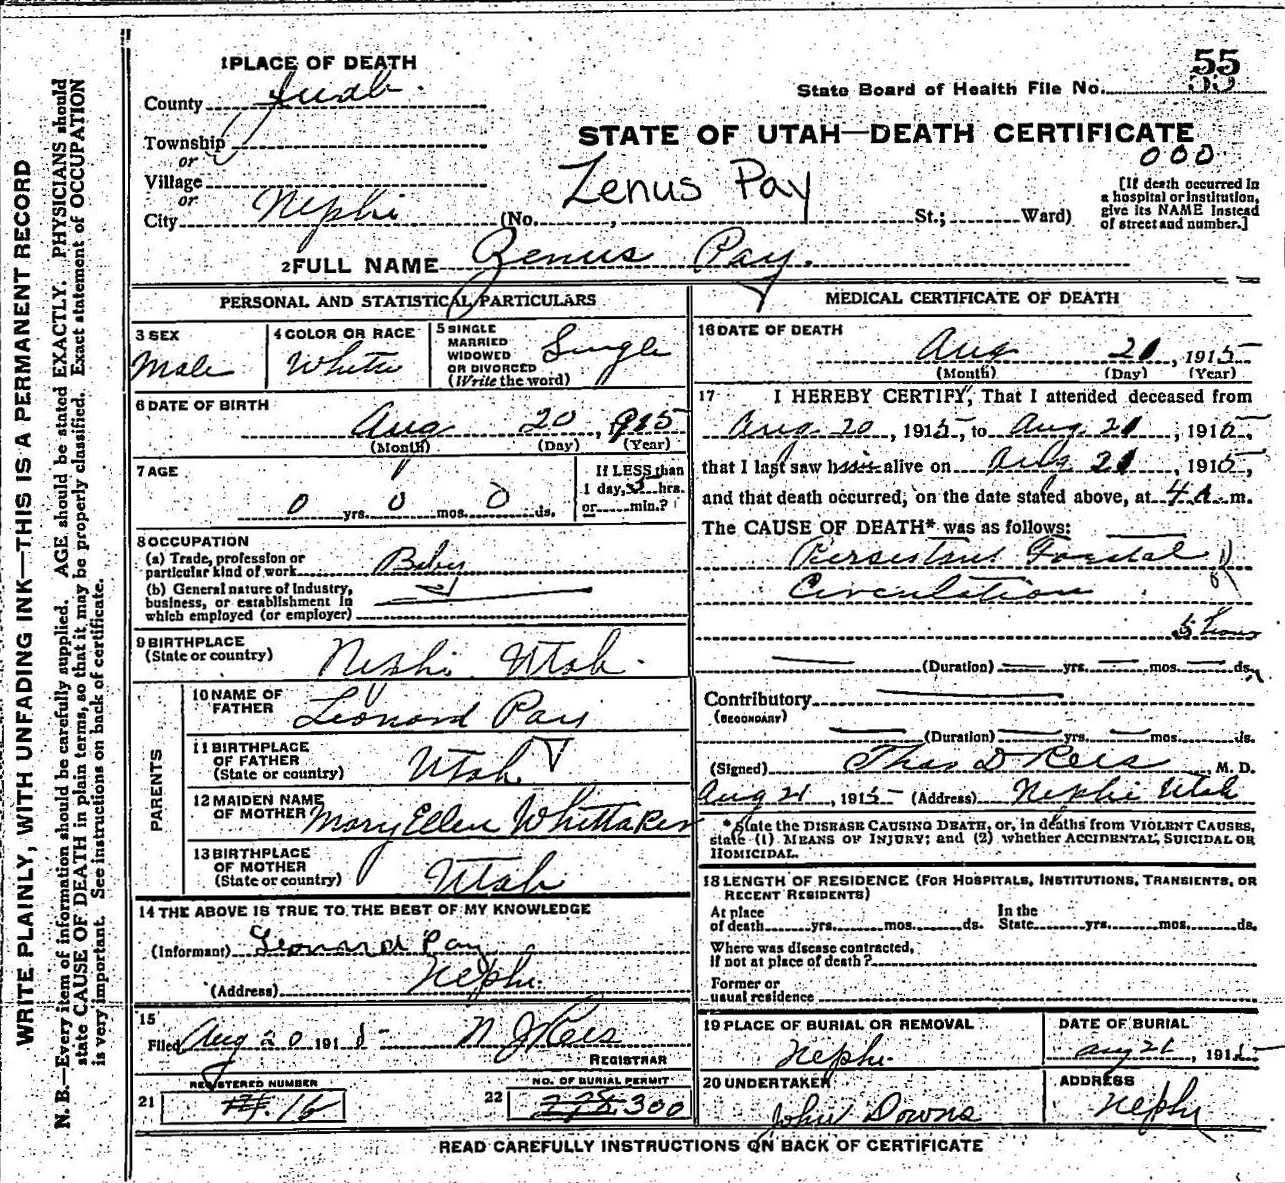 WRITE PLAINLY, WITH UNFADING INK—THIS IS A PERMANENT RECORD
N. B.—Every item of information should be carefully supplied. AGE should be stated EXACTLY. PHYSICIANS should
state CAUSE OF DEATH in plain terms, so that it may be properly classified. Exact statement of OCCUPATION
is very important. See instructions on back of certificate.
55
State Board of Health File No.
1 PLACE OF DEATH
County Juab.
Township
or
Village
or
City Nephi (No. , St.; Ward)
STATE OF UTAH—DEATH CERTIFICATE
000
Zenus Pay
[If death occurred in
a hospital or institution,
give its NAME instead
of street and number.]
2 FULL NAME Zenus Pay.
PERSONAL AND STATISTICAL PARTICULARS
3 SEX
Male
4 COLOR OR RACE
White
5 SINGLE
MARRIED
WIDOWED
OR DIVORCED
(Write the word)
Single
6 DATE OF BIRTH
Aug 20, 1915
(Month) (Day) (Year)
7 AGE
0 yrs. 0 mos. 0 ds.
If LESS than
1 day, 5 hrs.
or min.?
8 OCCUPATION
(a) Trade, profession or
particular kind of work Baby
(b) General nature of Industry,
business, or establishment in
which employed (or employer)
9 BIRTHPLACE
(State or country)
Nephi Utah.
PARENTS
10 NAME OF
FATHER
Leonard Pay
11 BIRTHPLACE
OF FATHER
(State or country)
Utah
12 MAIDEN NAME
OF MOTHER
Mary Ellen Whittaker
13 BIRTHPLACE
OF MOTHER
(State or country)
Utah
14 THE ABOVE IS TRUE TO THE BEST OF MY KNOWLEDGE
(Informant) Leonard Pay
(Address) Nephi.
15
Filed Aug 20 191
REGISTRAR
REGISTERED NUMBER
21 16
NO. OF BURIAL PERMIT
22 300
MEDICAL CERTIFICATE OF DEATH
16 DATE OF DEATH
Aug 21, 1915
(Month) (Day) (Year)
17 I HEREBY CERTIFY, That I attended deceased from
Aug. 20, 1915, to Aug. 21, 1915,
that I last saw him alive on Aug 21, 1915,
and that death occurred, on the date stated above, at 4 A m.
The CAUSE OF DEATH* was as follows:
Persistant Foetal
Circulation
5 hours
(Duration) yrs. mos. ds.
Contributory
(SECONDARY)
(Duration) yrs. mos. ds.
(Signed) Thos D Rees, M. D.
Aug 21, 1915 (Address) Nephi Utah
*State the DISEASE CAUSING DEATH, or, in deaths from VIOLENT CAUSES,
state (1) MEANS OF INJURY; and (2) whether ACCIDENTAL, SUICIDAL OR
HOMICIDAL.
18 LENGTH OF RESIDENCE (FOR HOSPITALS, INSTITUTIONS, TRANSIENTS, OR
RECENT RESIDENTS)
At place
of death yrs. mos. ds.
In the
State yrs. mos. ds.
Where was disease contracted,
if not at place of death?
Former or
usual residence
19 PLACE OF BURIAL OR REMOVAL
Nephi
DATE OF BURIAL
Aug 21, 1915
20 UNDERTAKER
John Downs
ADDRESS
Nephi
READ CAREFULLY INSTRUCTIONS ON BACK OF CERTIFICATE